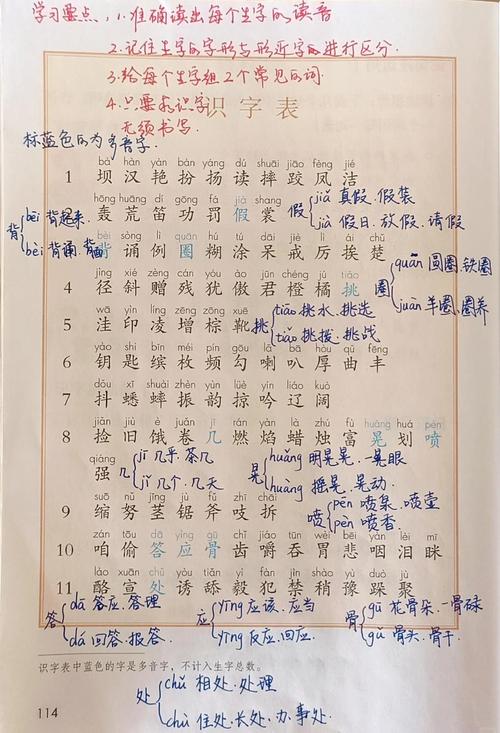 学习要点:1.准确读出每个生字的读音
2.记住生字的字形与形近字的进行区分.
3.给每个生字组2个常见的词
4.只要求识字
无须书写.
识字表
标蓝色的为多音字.
bà hàn yàn bàn yáng dú shuāi jiāo fèng jié
1 坝 汉 艳 扮 扬 读 摔 跤 凤 洁
hōng huāng dí gōng fá jiǎ cháng
轰 荒 笛 功 罚 假 裳
假 jiǎ 真假.假装
jià 假日.放假.请假
背 bēi 背起来.
bèi 背诵.背面
bèi sòng lì quān hú tú dāi jiè lì āi chǔ
3 背 诵 例 圈 糊 涂 呆 戒 厉 挨 楚
圈 quān 圆圈.铁圈
juàn 羊圈.圈养
jìng xié zèng cán yóu ào jūn chéng jú tiāo
4 径 斜 赠 残 犹 傲 君 橙 橘 挑
挑 tiāo 挑水.挑选
tiǎo 挑拨.挑战
wā yìn líng zēng zōng xuē
5 洼 印 凌 增 棕 靴
yào shi bīn méi pín gōu lǎ bā hòu qǔ fēng
6 钥 匙 缤 枚 频 勾 喇 叭 厚 曲 丰
dǒu xī shuài zhèn yùn yín liáo kuò
7 抖 蟋 蟀 振 韵 掠 吟 辽 阔
8 捡 旧 饿 卷 几 燃 焰 蜡 烛 富 晃 划 喷
qiáng
强
几 jī 几乎.茶几
jǐ 几个.几天
晃 huǎng 明晃晃.一晃眼
huàng 摇晃.晃动.
喷 pēn 喷泉.喷壶
pèn 喷香.
suō nǔ jīng jù fǔ zhī chāi
9 缩 努 茎 锯 斧 吱 拆
10 咱 偷 答 应 骨 齿 嚼 吞 胃 悲 咽 泪 眯
lào xuān chǔ yòu tiǎn yì fàn jìn shāo yù duǒ jù
11 酪 宣 处 诱 舔 毅 犯 禁 梢 豫 跺 聚
答 dā 答应.答理
dá 回答.报答.
应 yīng 应该.应当
yìng 反应.回应.
骨 gū 花骨朵.一骨碌
gǔ 骨头.骨干.
识字表中蓝色的字是多音字，不计入生字总数。
处 chǔ 相处.处理
chù 住处.长处.办事处
114